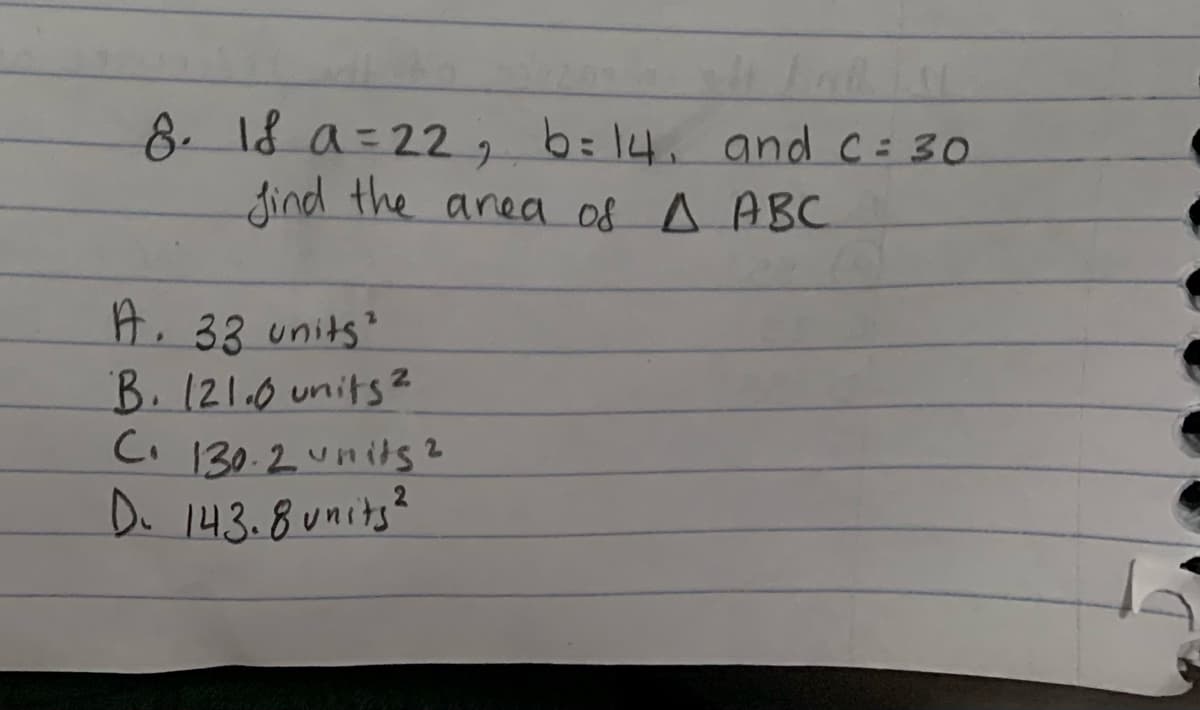 8. If a = 22, b = 14. and c = 30
find the area of Δ ABC
A. 33 units²
B. 121.0 units²
C. 130.2 units²
D. 143.8 units²